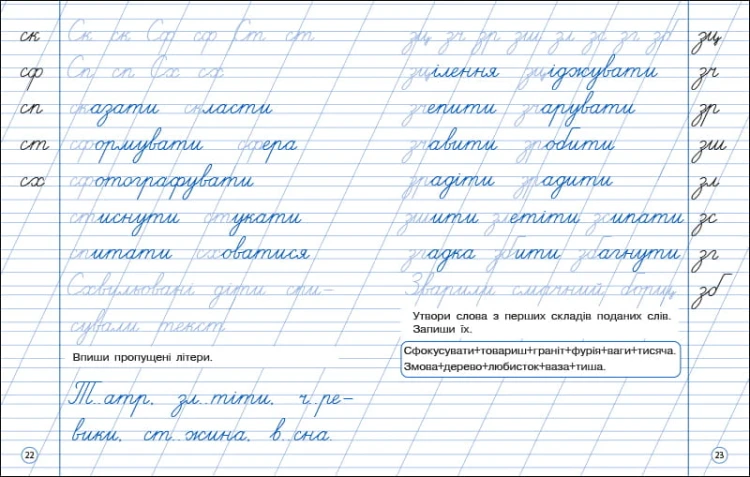 ск Ск ск Сф сф Ст ст
сф Сп сп Сх сх
сп сказати скласти
ст сформувати сфера
сх сфотографувати
стиснути стукати
спитати сховатися
Схвильовані діти спи-
сували текст
Впиши пропущені літери.
Т..атр, зл..тіти, ч..ре-
вики, ст..жина, в..сна.
22
зц зч зр зш зл зс зг зб зц
зцілення зціджувати зч
зчепити зчарувати зр
зчавити зробити зш
зрадіти зрадити зл
зшити злетіти зсипати зс
згадка збити збагнути зг
Зварили смачний борщ. зб
Утвори слова з перших складів поданих слів.
Запиши їх.
Сфокусувати+товариш+граніт+фурія+ваги+тисяча.
Змова+дерево+любисток+ваза+тиша.
23